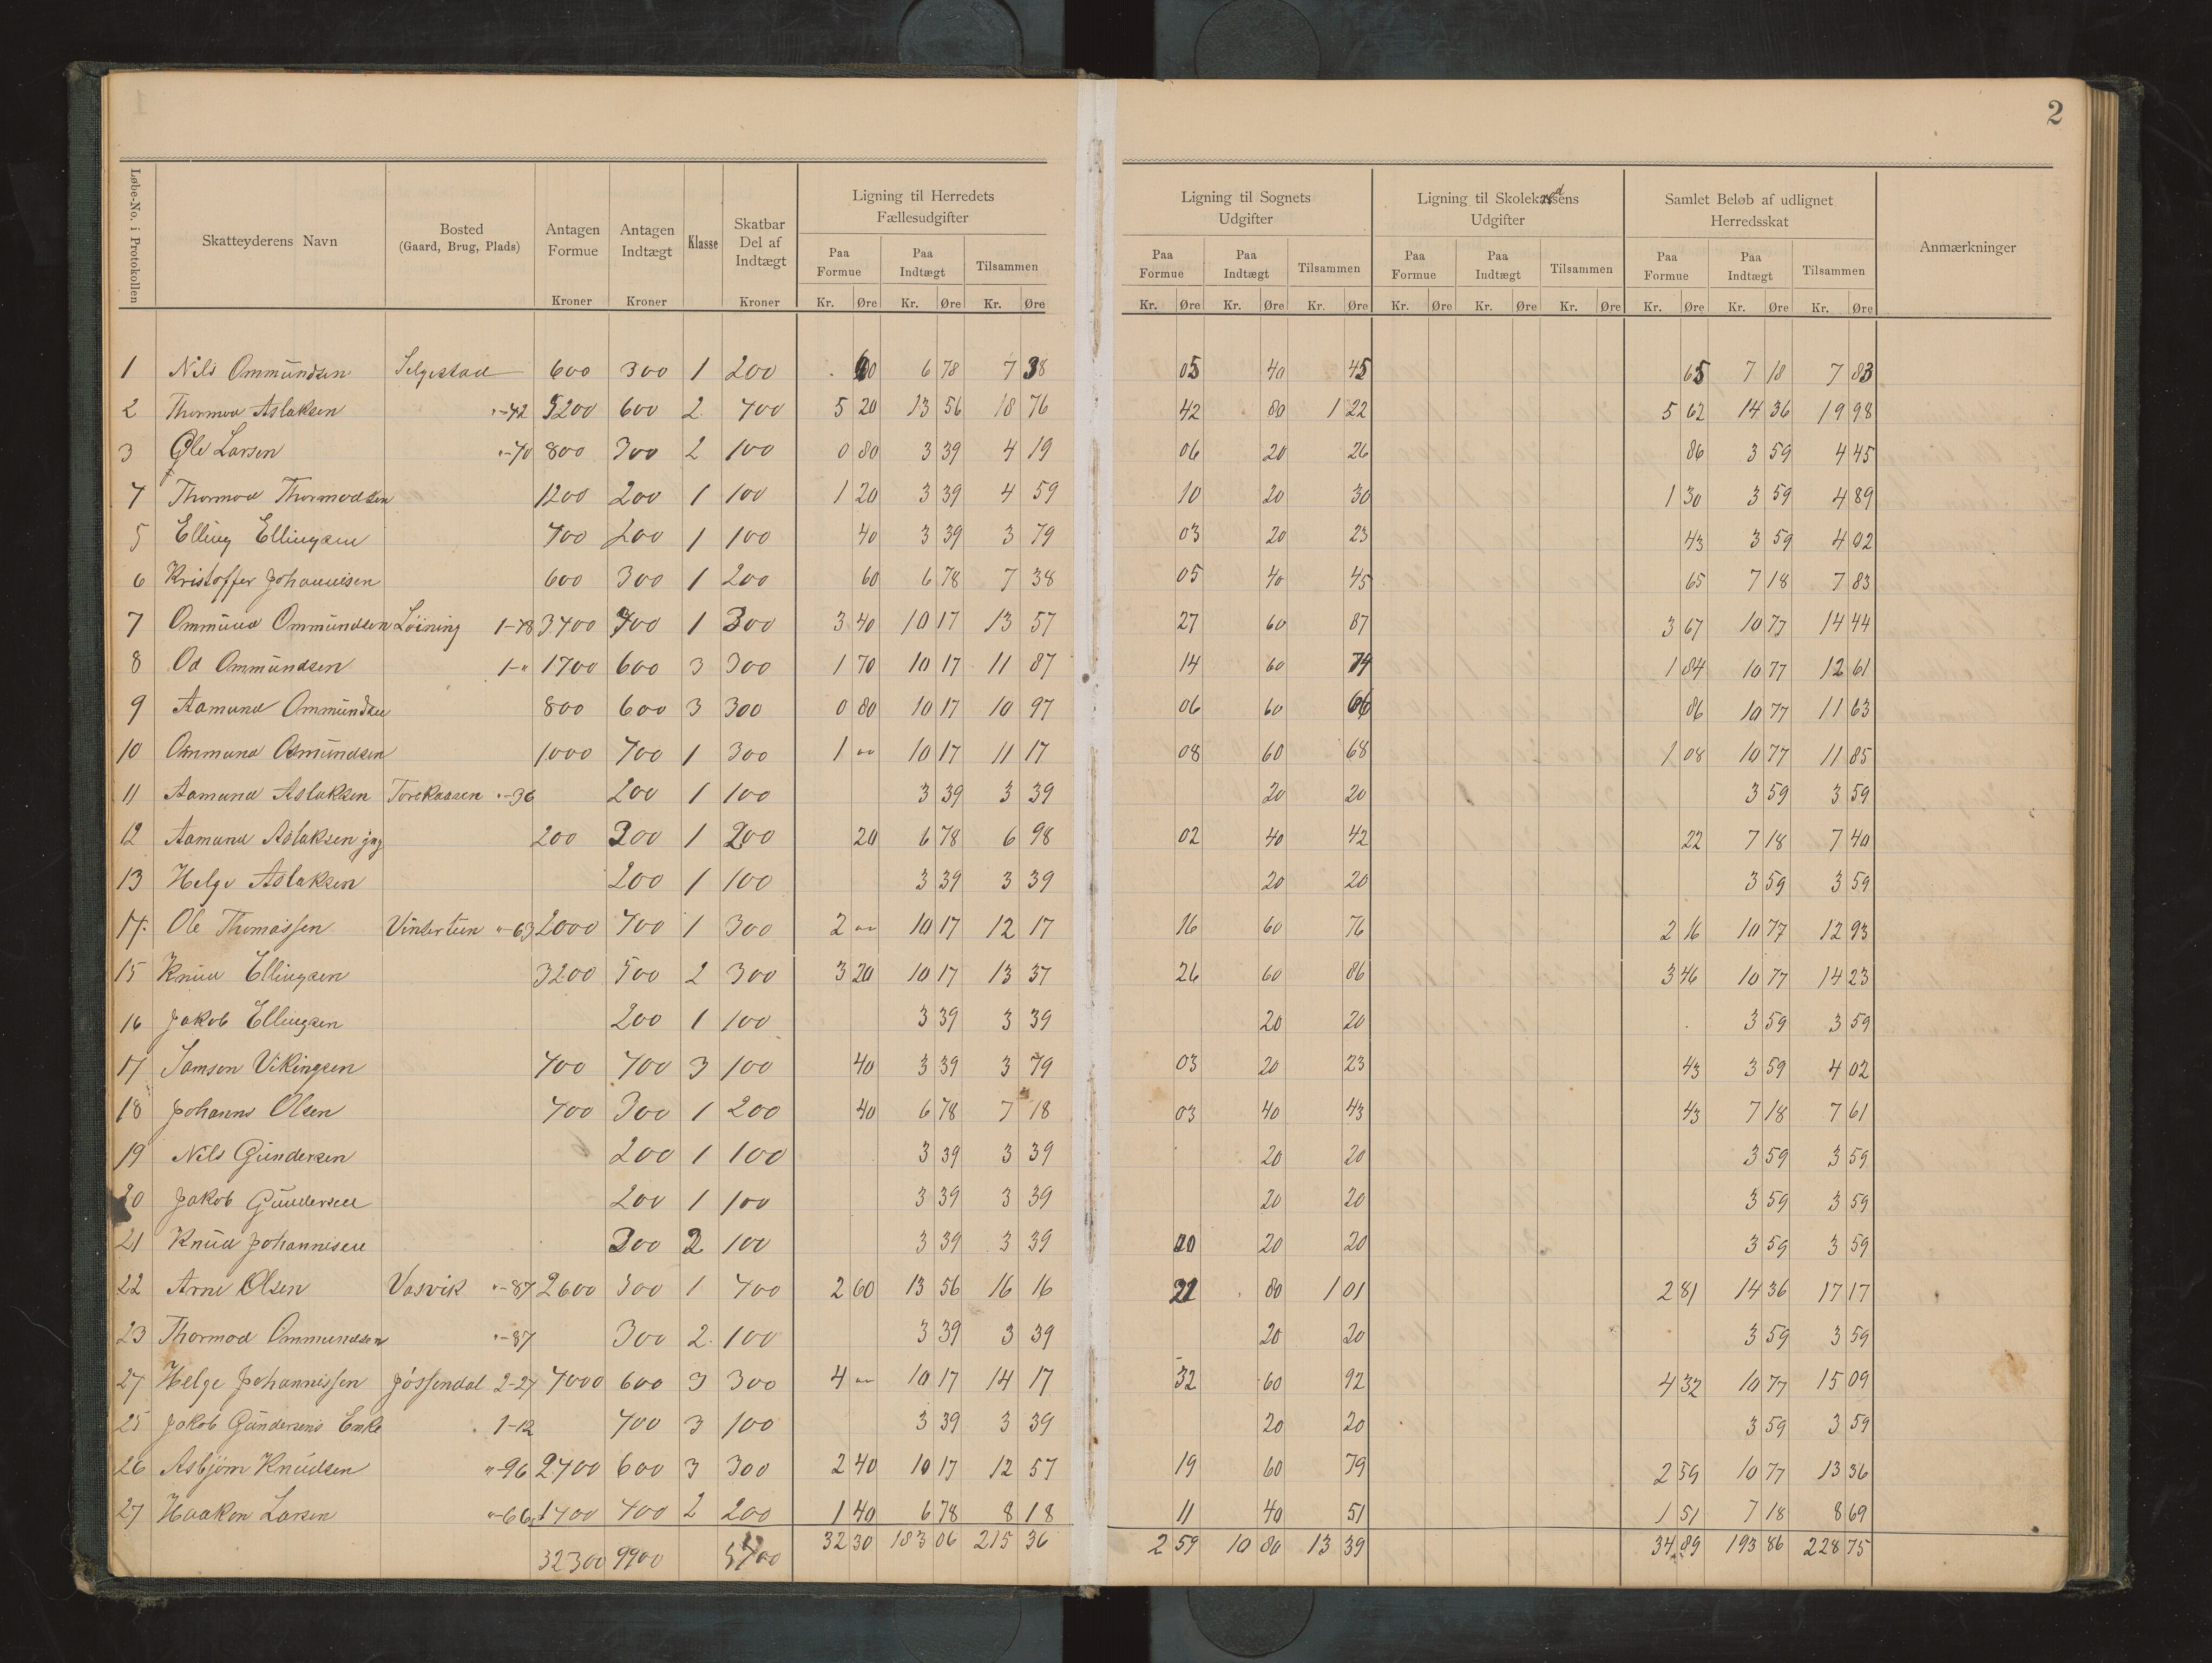 2
Løbe-No. i Protokollen | Skatteyderens Navn | Bosted (Gaard, Brug, Plads) | Antagen Formue Kroner | Antagen Indtægt Kroner | Klasse | Skatbar Del af Indtægt Kroner | Ligning til Herredets Fællesudgifter | Ligning til Sognets Udgifter | Ligning til Skolekredsens Udgifter | Samlet Beløb af udlignet Herredsskat | Anmærkninger
Paa Formue | Paa Indtægt | Tilsammen | Paa Formue | Paa Indtægt | Tilsammen | Paa Formue | Paa Indtægt | Tilsammen | Paa Formue | Paa Indtægt | Tilsammen
Kr. Øre | Kr. Øre | Kr. Øre | Kr. Øre | Kr. Øre | Kr. Øre | Kr. Øre | Kr. Øre | Kr. Øre | Kr. Øre | Kr. Øre | Kr. Øre
1 Nils Ommundsen Selgestad 600 300 1 200 60 6 78 7 38 05 40 45 65 7 18 7 83
2 Thormod Aslaksen "-42 5200 600 2 400 5 20 13 56 18 76 42 80 1 22 5 62 14 36 19 98
3 Ole Larsen "-40 800 300 2 100 0 80 3 39 4 19 06 20 26 86 3 59 4 45
4 Thormod Thormodsen 1200 200 1 100 1 20 3 39 4 59 10 20 30 1 30 3 59 4 89
5 Elling Ellingsen 400 200 1 100 40 3 39 3 79 03 20 23 43 3 59 4 02
6 Kristoffer Johannisen 600 300 1 200 60 6 78 7 38 05 40 45 65 7 18 7 83
7 Ommund Ommundsen Löining 1-48 3400 400 1 300 3 40 10 17 13 57 27 60 87 3 67 10 77 14 44
8 Od Ommundsen 1-" 1700 600 3 300 1 70 10 17 11 87 14 60 74 1 84 10 77 12 61
9 Aamund Ommundsen 800 600 3 300 0 80 10 17 10 97 06 60 66 86 10 77 11 63
10 Ommund Osmundsen 1000 400 1 300 1 " 10 17 11 17 08 60 68 1 08 10 77 11 85
11 Aamund Aslaksen Torekaasen "-36 200 1 100 3 39 3 39 20 20 3 59 3 59
12 Aamund Aslaksen jng 200 300 1 200 20 6 78 6 98 02 40 42 22 7 18 7 40
13 Helge Aslaksen 200 1 100 3 39 3 39 20 20 3 59 3 59
14 Ole Thomassen Vintertun "-63 2000 400 1 300 2 " 10 17 12 17 16 60 76 2 16 10 77 12 93
15 Knud Ellingsen 3200 500 2 300 3 20 10 17 13 37 26 60 86 3 46 10 77 14 23
16 Jakob Ellingsen 200 1 100 3 39 3 39 20 20 3 59 3 59
17 Samson Vikingsen 400 400 3 100 40 3 39 3 79 03 20 23 43 3 59 4 02
18 Johanns Olsen 400 300 1 200 40 6 78 7 18 03 40 43 43 7 18 7 61
19 Nils Gundersen 200 1 100 3 39 3 39 20 20 3 59 3 59
20 Jakob Gundersen 200 1 100 3 39 3 39 20 20 3 59 3 59
21 Knud Johannisen 300 2 100 3 39 3 39 20 20 20 3 59 3 59
22 Arne Olsen Vasvik "-87 2600 500 1 400 2 60 13 56 16 16 21 80 1 01 2 81 14 36 17 17
23 Thormod Ommundsen "-87 300 2 100 3 39 3 39 20 20 3 59 3 59
24 Helge Johannissen Jössendal 2-24 4000 600 3 300 4 " 10 17 14 17 32 60 92 4 32 10 77 15 09
25 Jakob Gundersens Enke 1-12 400 3 100 3 39 3 39 20 20 3 59 3 59
26 Asbjörn Knudsen "-96 2400 600 3 300 2 40 10 17 12 57 19 60 79 2 59 10 77 13 36
27 Haakon Larsen "-66 1400 400 2 200 1 40 6 78 8 18 11 40 51 1 51 7 18 8 69
32300 9900 5400 32 30 183 06 215 36 2 59 10 80 13 39 34 89 193 86 228 75